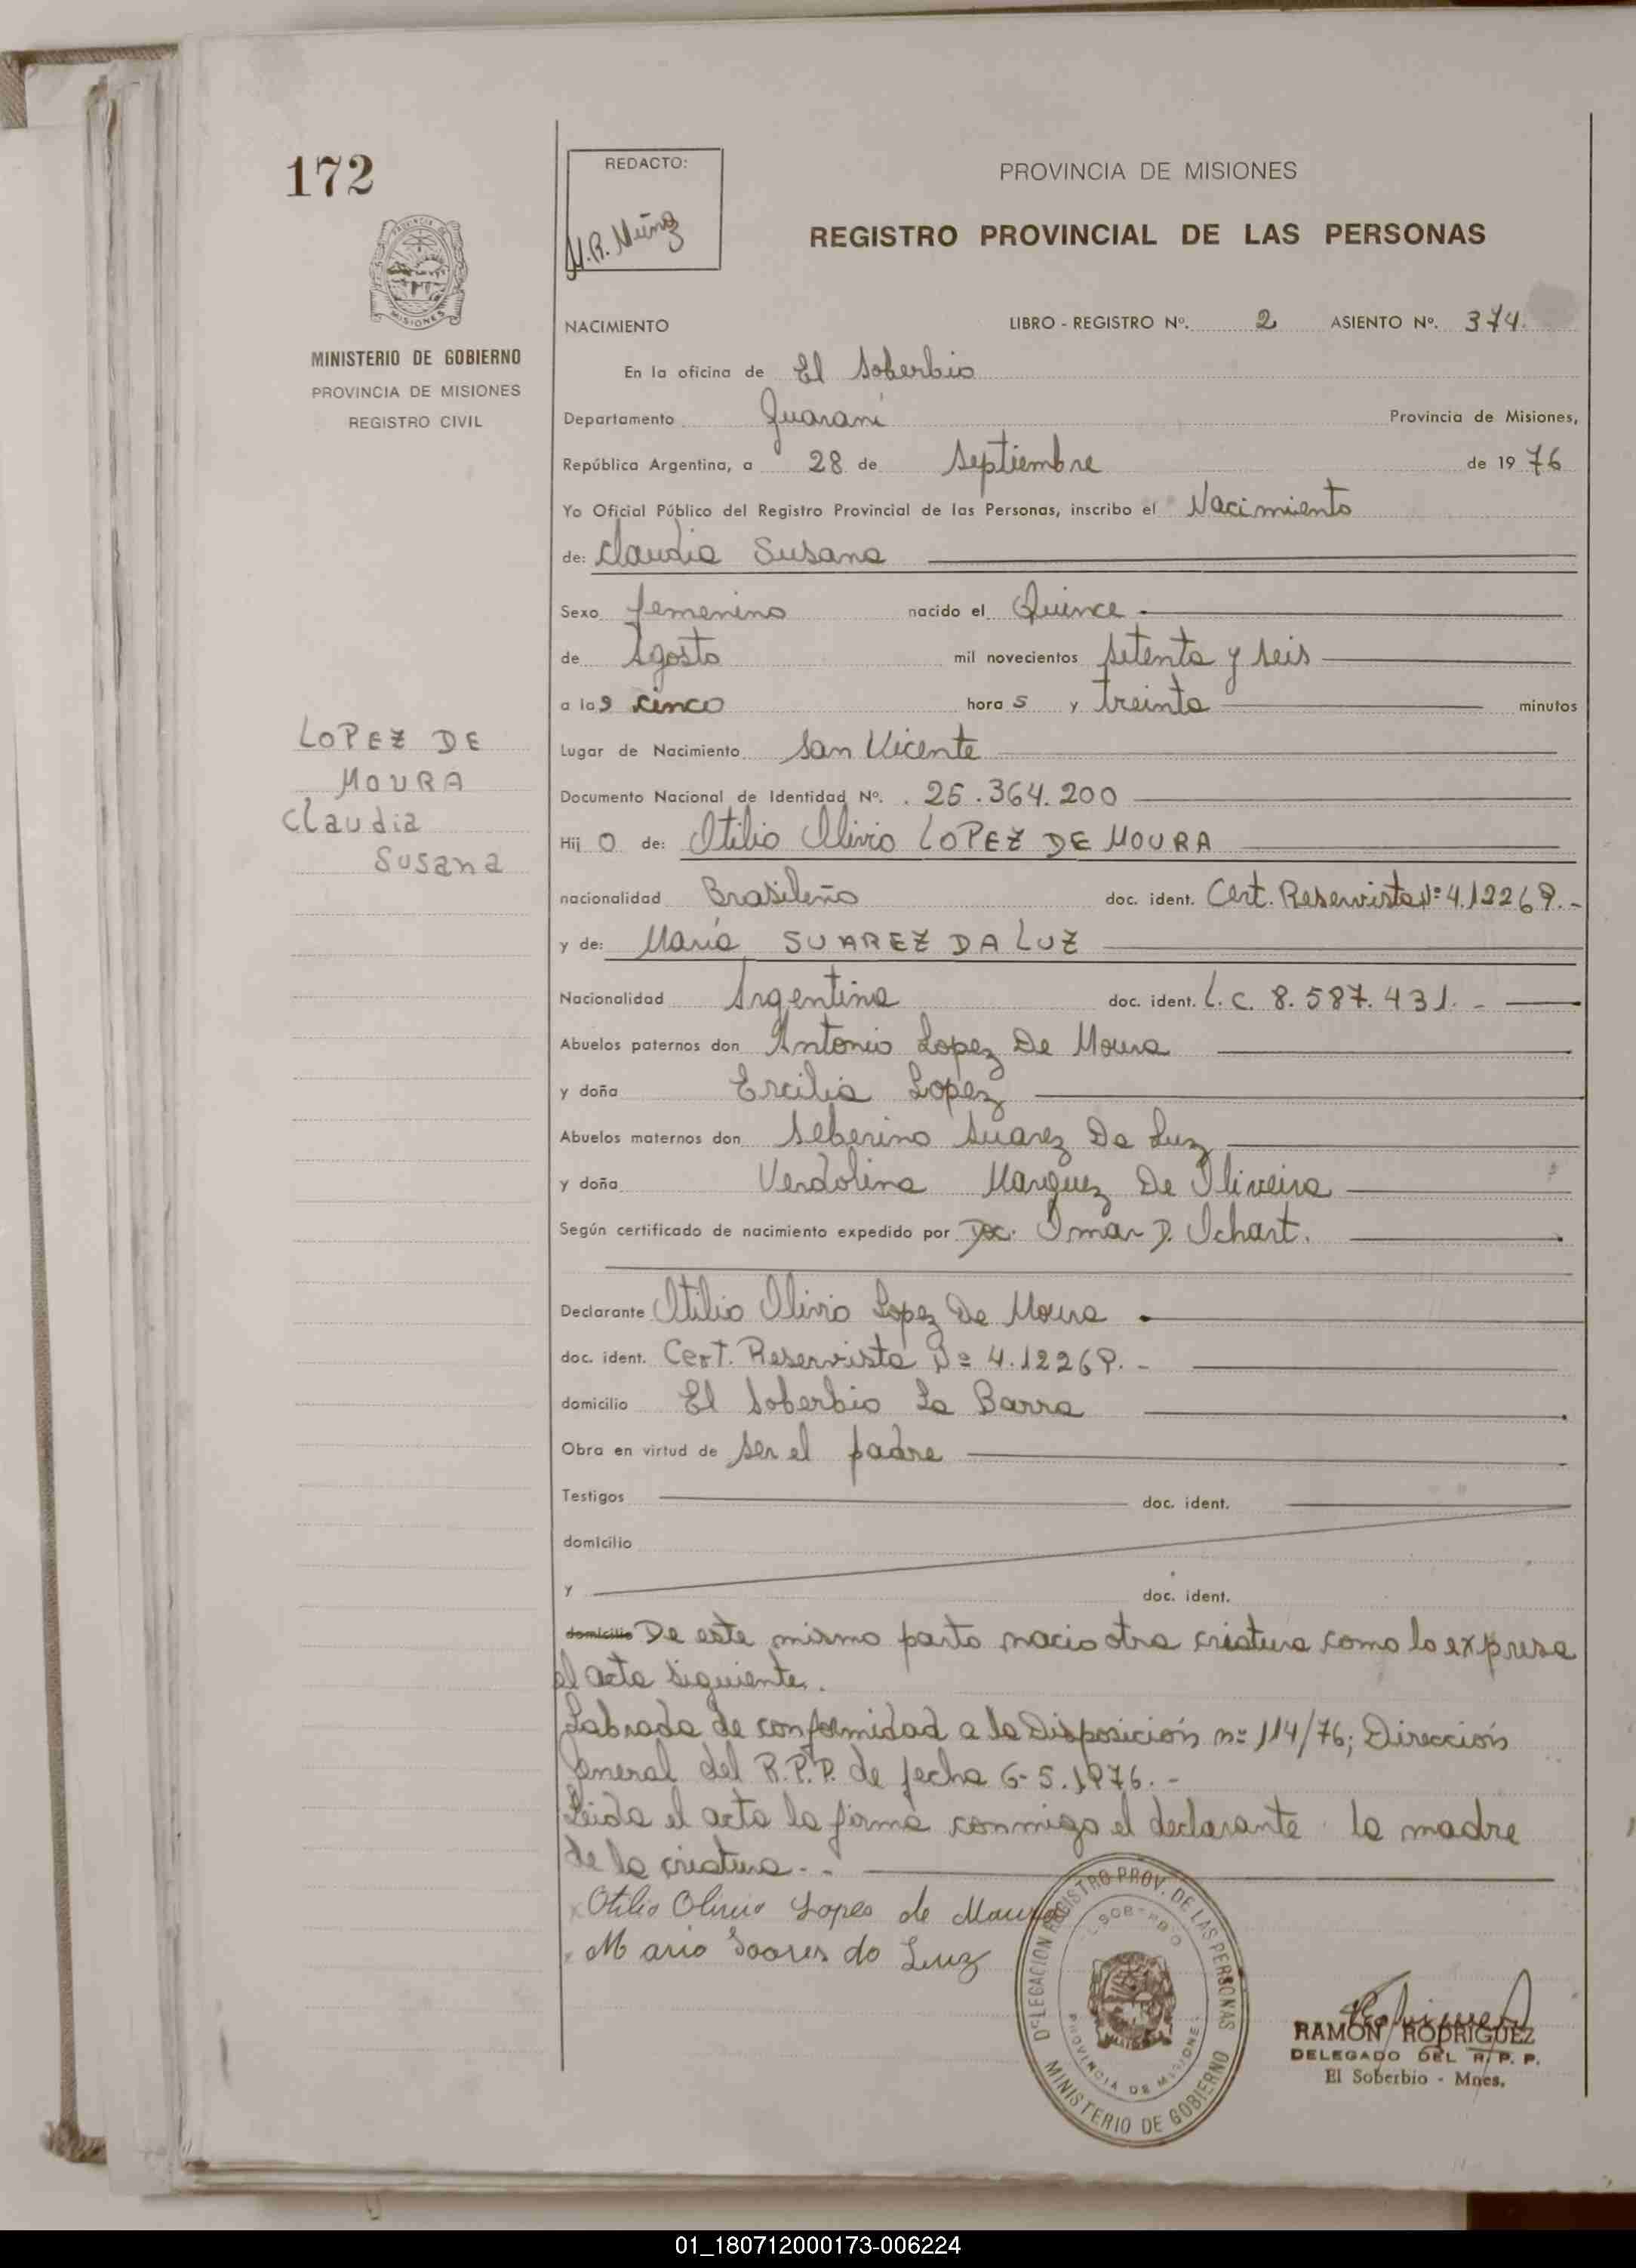 172
REDACTO:
M.R. Núñez
PROVINCIA DE MISIONES
REGISTRO PROVINCIAL DE LAS PERSONAS
MINISTERIO DE GOBIERNO
PROVINCIA DE MISIONES
REGISTRO CIVIL
NACIMIENTO LIBRO - REGISTRO Nº. 2 ASIENTO Nº. 374.
En la oficina de El Soberbio
Departamento Guaraní Provincia de Misiones,
República Argentina, a 28 de Septiembre de 1976
Yo Oficial Público del Registro Provincial de las Personas, inscribo el Nacimiento
de: Claudia Susana
Sexo femenino nacido el Quince
de Agosto mil novecientos setenta y seis
a las cinco horas y treinta minutos
LOPEZ DE
MOURA
Claudia
Susana
Lugar de Nacimiento San Vicente
Documento Nacional de Identidad Nº. 25.364.200
Hijo de: Otilio Olivio LOPEZ DE MOURA
nacionalidad Brasileño doc. ident. Cert. Reservista Nº 4.12269.-
y de: María SUAREZ DA LUZ
Nacionalidad Argentina doc. ident. L.C. 8.587.431.-
Abuelos paternos don Antonio Lopez De Moura
y doña Ercilia Lopez
Abuelos maternos don Seberino Suarez Da Luz
y doña Verdolina Marquez De Oliveira
Según certificado de nacimiento expedido por Doc. Omar D. Ichart.
Declarante Otilio Olivio Lopez De Moura
doc. ident. Cert. Reservista Nº 4.12269.-
domicilio El Soberbio La Barra
Obra en virtud de ser el padre
Testigos doc. ident.
domicilio
y doc. ident.
domicilio De este mismo parto nacio otra criatura como lo expresa
el acta siguiente.
Labrada de conformidad a la Disposición nº 114/76; Dirección
General del R.P.P. de fecha 6-5.1976.-
Leida el acta la firma conmigo el declarante la madre
de la criatura.-
Otilio Olivio Lopes de Moura
Maria Soares da Luz
DELEGACION REGISTRO PROV. DE LAS PERSONAS
SOBERBIO
PROVINCIA DE MISIONES
MINISTERIO DE GOBIERNO
RAMON RODRIGUEZ
DELEGADO DEL R. P. P.
El Soberbio - Mnes.
01_180712000173-006224